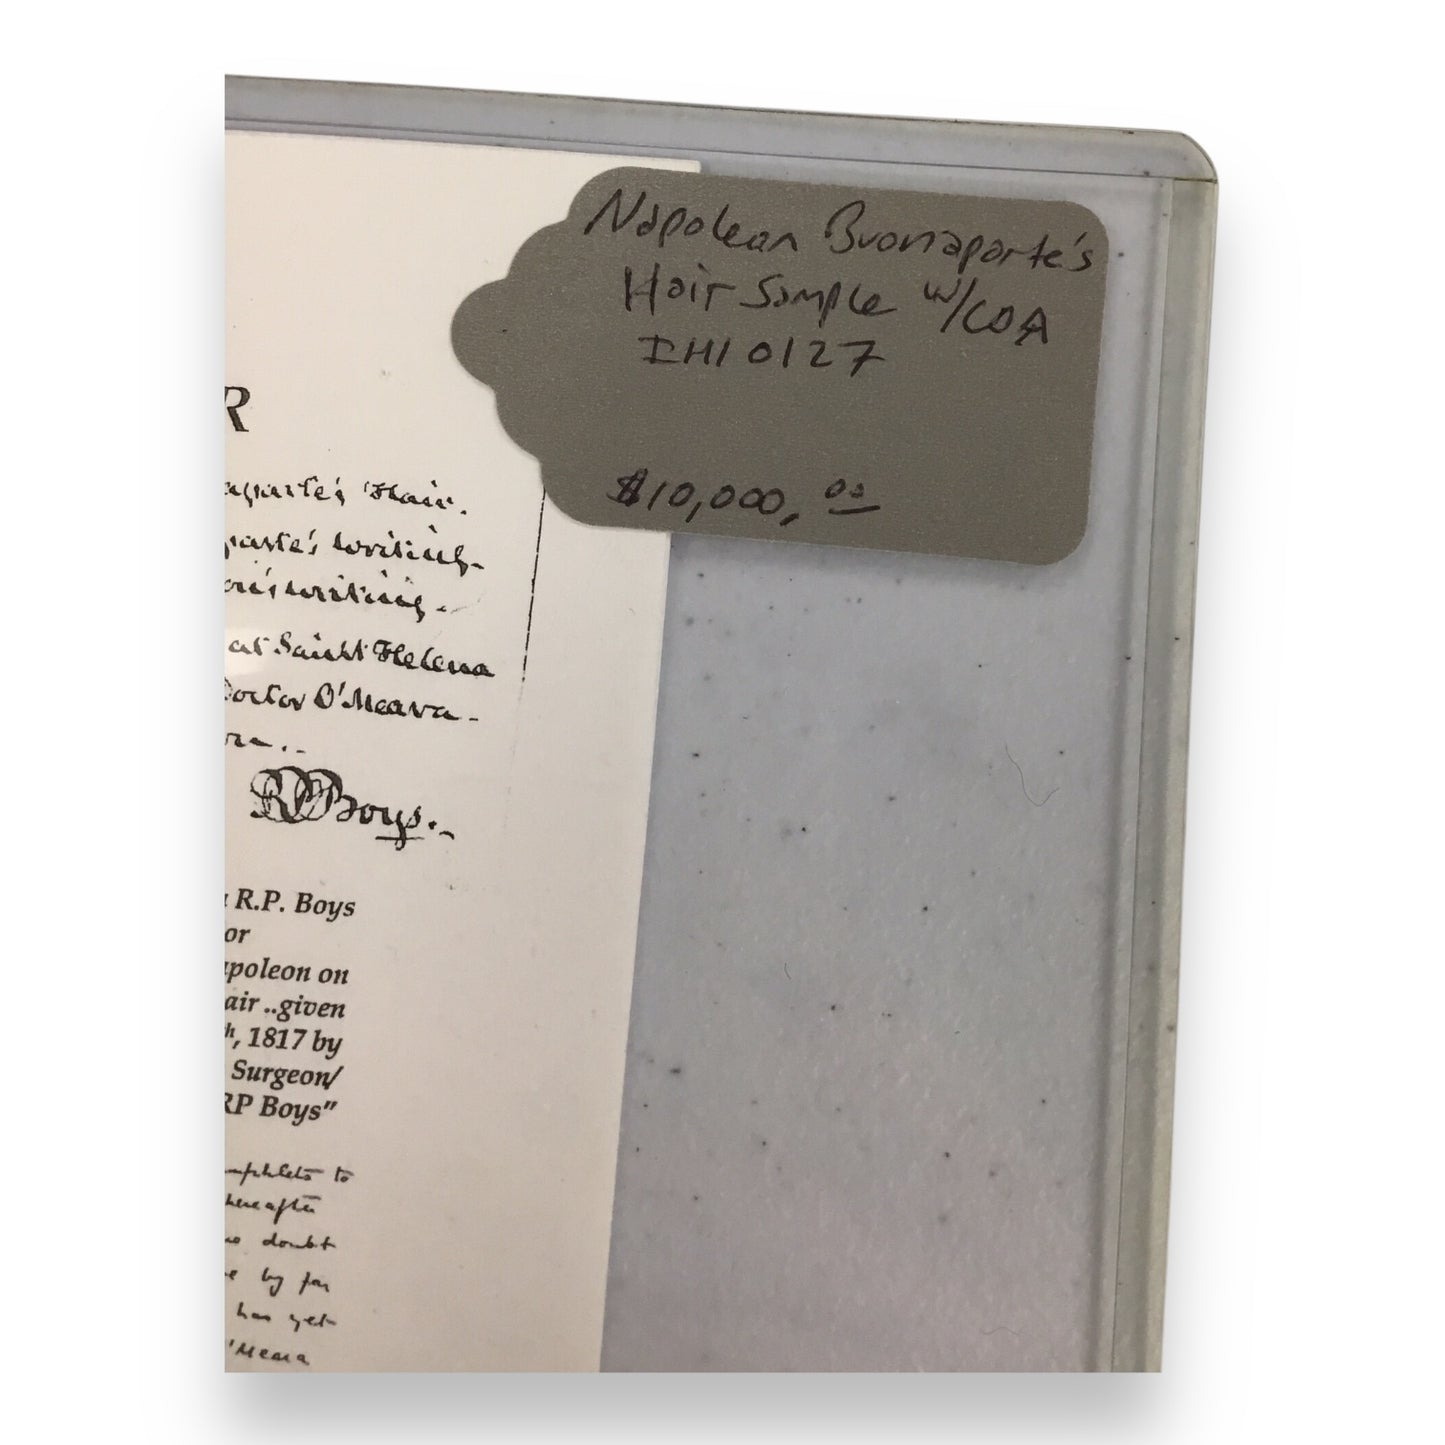 Napolean Buonaparte's
Hair Sample w/COA
IHI 0127
$10,000,00
R
aparte's Hair.
parte's writing-
on's writing.
at Saint Helena
Doctor O'Meara-
RPBoys.
R.P. Boys
or
apoleon on
air ..given
h, 1817 by
Surgeon/
RP Boys"
mphlets to
hereafter
no doubt
e by far
has yet
O'Meara